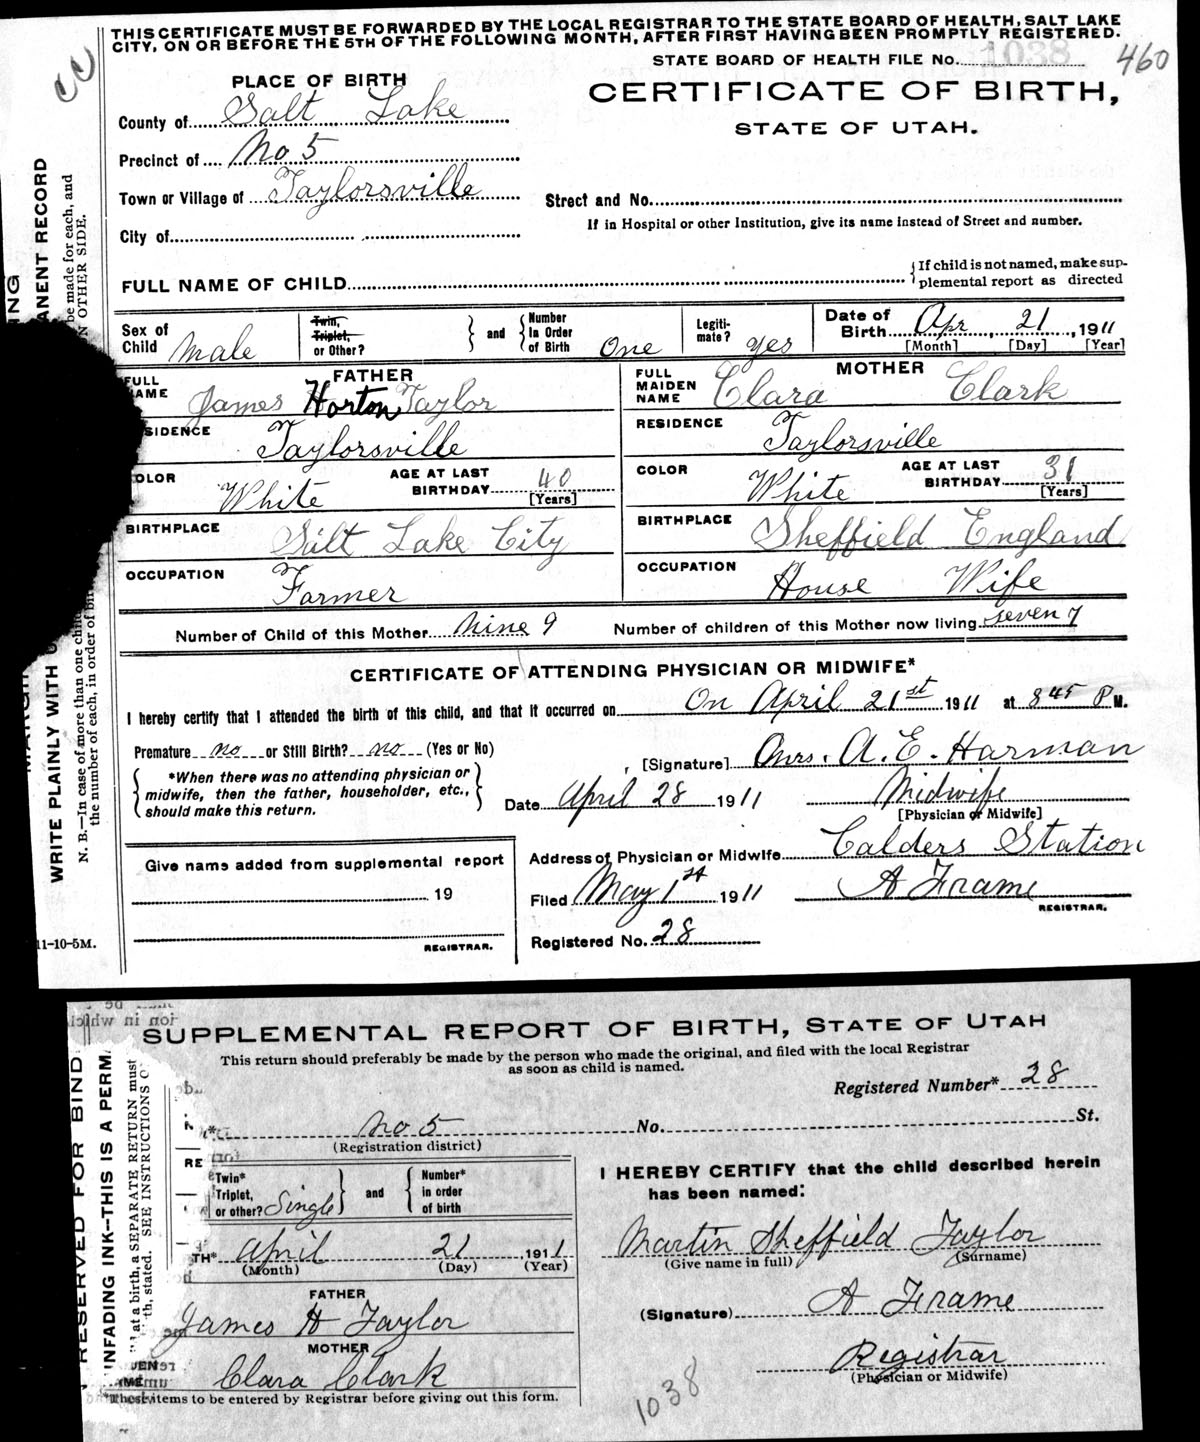 THIS CERTIFICATE MUST BE FORWARDED BY THE LOCAL REGISTRAR TO THE STATE BOARD OF HEALTH, SALT LAKE
CITY, ON OR BEFORE THE 5TH OF THE FOLLOWING MONTH, AFTER FIRST HAVING BEEN PROMPTLY REGISTERED.
STATE BOARD OF HEALTH FILE No. 1038 460
CC
PLACE OF BIRTH
CERTIFICATE OF BIRTH,
STATE OF UTAH.
County of Salt Lake
Precinct of No 5
Town or Village of Taylorsville
Street and No.
If in Hospital or other Institution, give its name instead of Street and number.
City of
FULL NAME OF CHILD
If child is not named, make sup-
plemental report as directed
Sex of Child Male
Twin, Triplet, or Other? and Number in Order of Birth One
Legiti-mate? yes
Date of Birth Apr 21, 1911
[Month] [Day] [Year]
FATHER
FULL NAME James Horton Taylor
RESIDENCE Taylorsville
COLOR White AGE AT LAST BIRTHDAY 40 [Years]
BIRTHPLACE Salt Lake City
OCCUPATION Farmer
MOTHER
FULL MAIDEN NAME Clara Clark
RESIDENCE Taylorsville
COLOR White AGE AT LAST BIRTHDAY 31 [Years]
BIRTHPLACE Sheffield England
OCCUPATION House Wife
Number of Child of this Mother Nine 9 Number of children of this Mother now living seven 7
CERTIFICATE OF ATTENDING PHYSICIAN OR MIDWIFE*
I hereby certify that I attended the birth of this child, and that it occurred on On April 21st 1911 at 8 45 P M.
Premature no or Still Birth? no (Yes or No)
*When there was no attending physician or
midwife, then the father, householder, etc.,
should make this return.
[Signature] Mrs. A. E. Harman
Date April 28 1911 Midwife
[Physician or Midwife]
Address of Physician or Midwife Calders Station
Give name added from supplemental report
19
REGISTRAR.
Filed May 1st 1911 A Frame
REGISTRAR.
Registered No. 28
11-10-5M.
WRITE PLAINLY WITH
ANENT RECORD
N. B.—In case of more than one child
the number of each, in order of bir
be made for each, and
N OTHER SIDE.
SUPPLEMENTAL REPORT OF BIRTH, STATE OF UTAH
This return should preferably be made by the person who made the original, and filed with the local Registrar
as soon as child is named.
Registered Number* 28
No 5 No. St.
(Registration district)
Twin* Triplet, or other? Single and Number* in order of birth
TH* April 21 1911
(Month) (Day) (Year)
FATHER
James H Taylor
MOTHER
Clara Clark
*These items to be entered by Registrar before giving out this form.
I HEREBY CERTIFY that the child described herein
has been named:
Martin Sheffield Taylor
(Give name in full) (Surname)
(Signature) A Frame
Registrar
(Physician or Midwife)
1038
RESERVED FOR BIND
NFADING INK—THIS IS A PERM
at a birth, a SEPARATE RETURN must
th, stated. SEE INSTRUCTIONS O